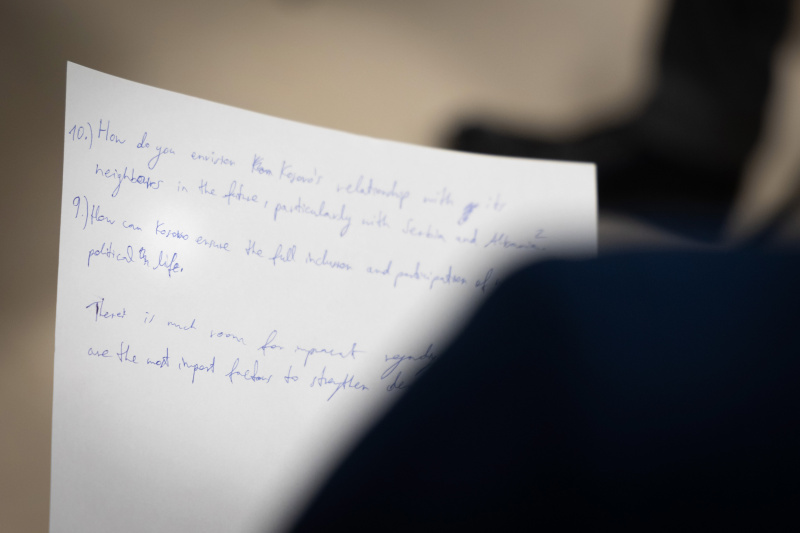 10.) How do you envision Kosovo's relationship with its
neighbours in the future, particularly with Serbia and Albania?
9.) How can Kosovo ensure the full inclusion and participation of
political in life.
There's is much room for
are the most import factors to